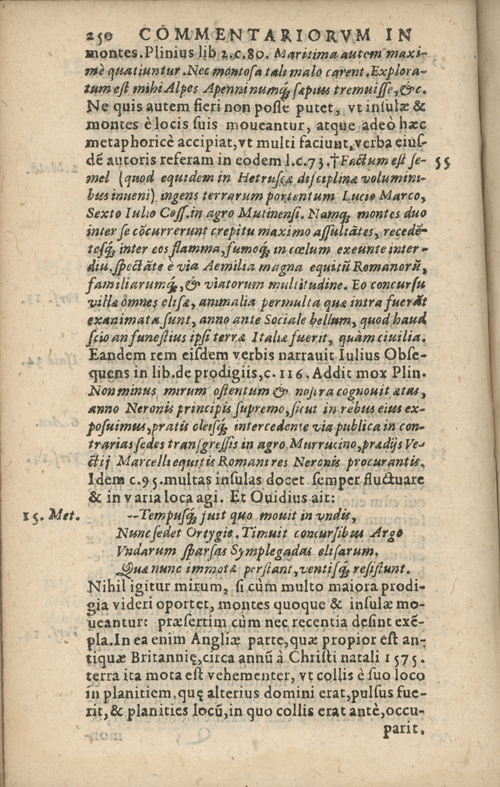 250 COMMENTARIORVM IN
montes. Plinius lib 2. c. 80. Maritima autem maxi-
mè quatiuntur. Nec montosa tali malo carent. Explora-
tum est mihi Alpes Apenninumq́; sæpius tremuisse, &c.
Ne quis autem fieri non posse putet, vt insulæ &
montes è locis suis moueantur, atque adeò hæc
metaphoricè accipiat, vt multi faciunt, verba eius-
dē autoris referam in eodem l. c. 73. †Factum est se- 55
mel (quod equidem in Hetruscæ disciplinæ volumini-
bus inueni) ingens terrarum portentum Lucio Marco,
Sexto Iulio Coss. in agro Mutinensi. Namq́; montes duo
inter se cōcurrerunt crepitu maximo assultātes, recedē-
tesq́; inter eos flamma, fumoq́; in cœlum exeunte inter-
diu, spectāte è via Aemilia magna equitū Romanorū,
familiarumq́;, & viatorum multitudine. Eo concursu
villæ omnes elisæ, animalia permulta quæ intra fuerāt
exanimata sunt, anno ante Sociale bellum, quod haud
scio an funestius ipsi terræ Italiæ fuerit, quàm ciuilia.
Eandem rem eisdem verbis narrauit Iulius Obse-
quens in lib. de prodigiis, c. 116. Addit mox Plin.
Non minus mirum ostentum & nostra cognouit ætas,
anno Neronis principis supremo, sicut in rebus eius ex-
posuimus, pratis oleisq́; intercedente via publica in con-
trarias sedes transgressis in agro Murrucino, prædijs Ve-
ctij Marcelli equitis Romani res Neronis procurantis.
Idem c. 95. multas insulas docet semper fluctuare
& in varia loca agi. Et Ouidius ait:
15. Met. --Tempusq́; fuit quo mouit in vndis,
Nunc sedet Ortygie. Timuit concursibus Argo
Vndarum sparsas Symplegadas elisarum,
Quæ nunc immotæ perstant, ventisq́; resistunt.
Nihil igitur mirum, si cùm multo maiora prodi-
gia videri oportet, montes quoque & insulæ mo-
ueantur: præsertim cùm nec recentia desint exē-
pla. In ea enim Angliæ parte, quæ propior est an-
tiquæ Britannię, circa annū à Christi natali 1575.
terra ita mota est vehementer, vt collis è suo loco
in planitiem, quę alterius domini erat, pulsus fue-
rit, & planities locū, in quo collis erat antè, occu-
parit.